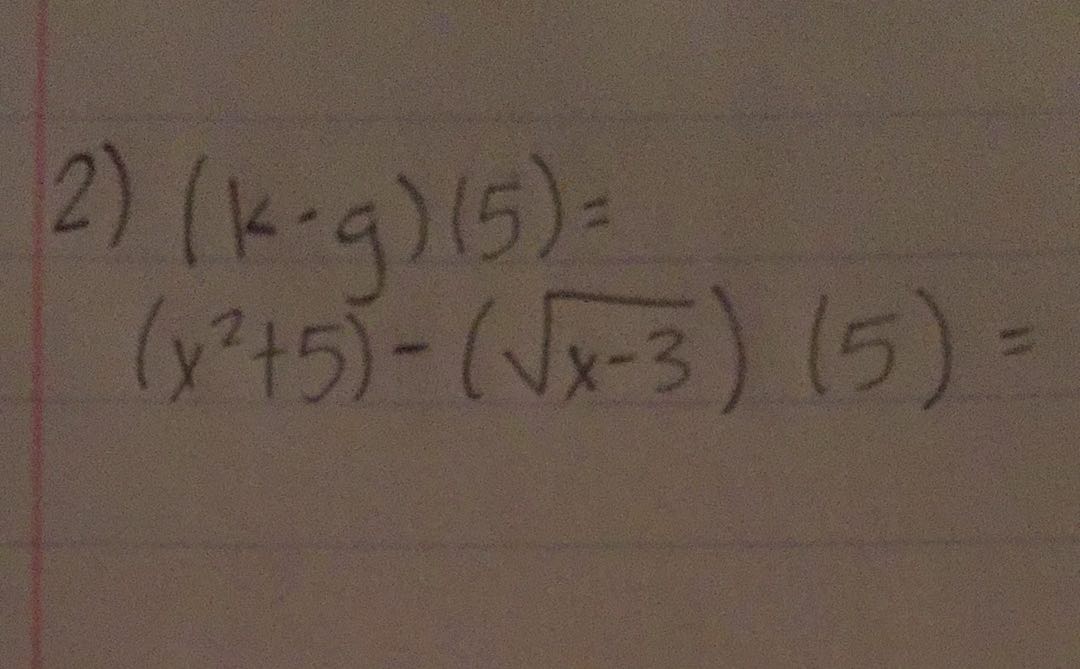 2) (k - g)(5) =
(x²+5) - (√x-3) (5) =